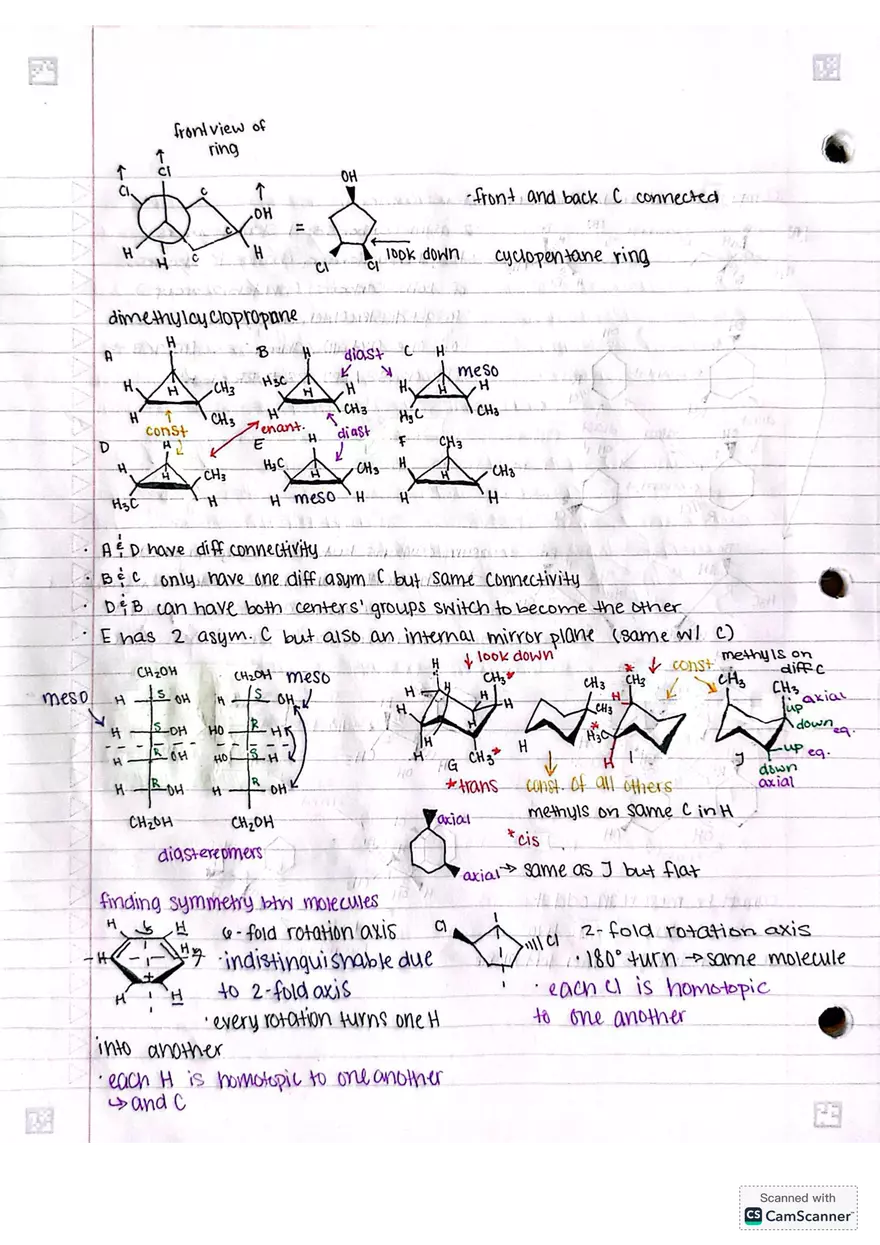 front view of
ring
Cl
Cl
C
OH
C
C
H
H
H
=
OH
Cl
Cl
look down
-front and back C connected
cyclopentane ring
dimethylcyclopropane
A
H
H
H
H
CH3
CH3
B
H
H3C
H
H
H
CH3
diast
C
H
meso
H
H
H3C
CH3
const
enant.
diast
D
H
H
H
CH3
H3C
H
E
H
H3C
H
CH3
H
meso
H
F
CH3
H
H
CH3
H
H
· A & D have diff connectivity
· B & C only have one diff asym C but same connectivity
· D & B can have both centers' groups switch to become the other
· E has 2 asym. C but also an internal mirror plane (same w/ C)
meso
CH2OH
H S OH
H S OH
H R OH
H R OH
CH2OH
CH2OH meso
H S OH
HO R H
HO S H
H R OH
CH2OH
diastereomers
look down
H
H
H
H
H
H
H
H
CH3*
CH3*
G
*trans
CH3
CH3
H
const. of all others
methyls on same C in H
*
CH3
H
*
H3C
H
I
*cis
const
methyls on
diff C
CH3
CH3
axial
up
down
eq.
up eq.
down
axial
J
axial
axial → same as J but flat
finding symmetry btw molecules
H
H
H
H
H
H
6-fold rotation axis
·indistinguishable due
to 2-fold axis
·every rotation turns one H
into another
·each H is homotopic to one another
↳ and C
Cl
Cl
2-fold rotation axis
·180° turn → same molecule
·each Cl is homotopic
to one another
Scanned with
CS CamScanner